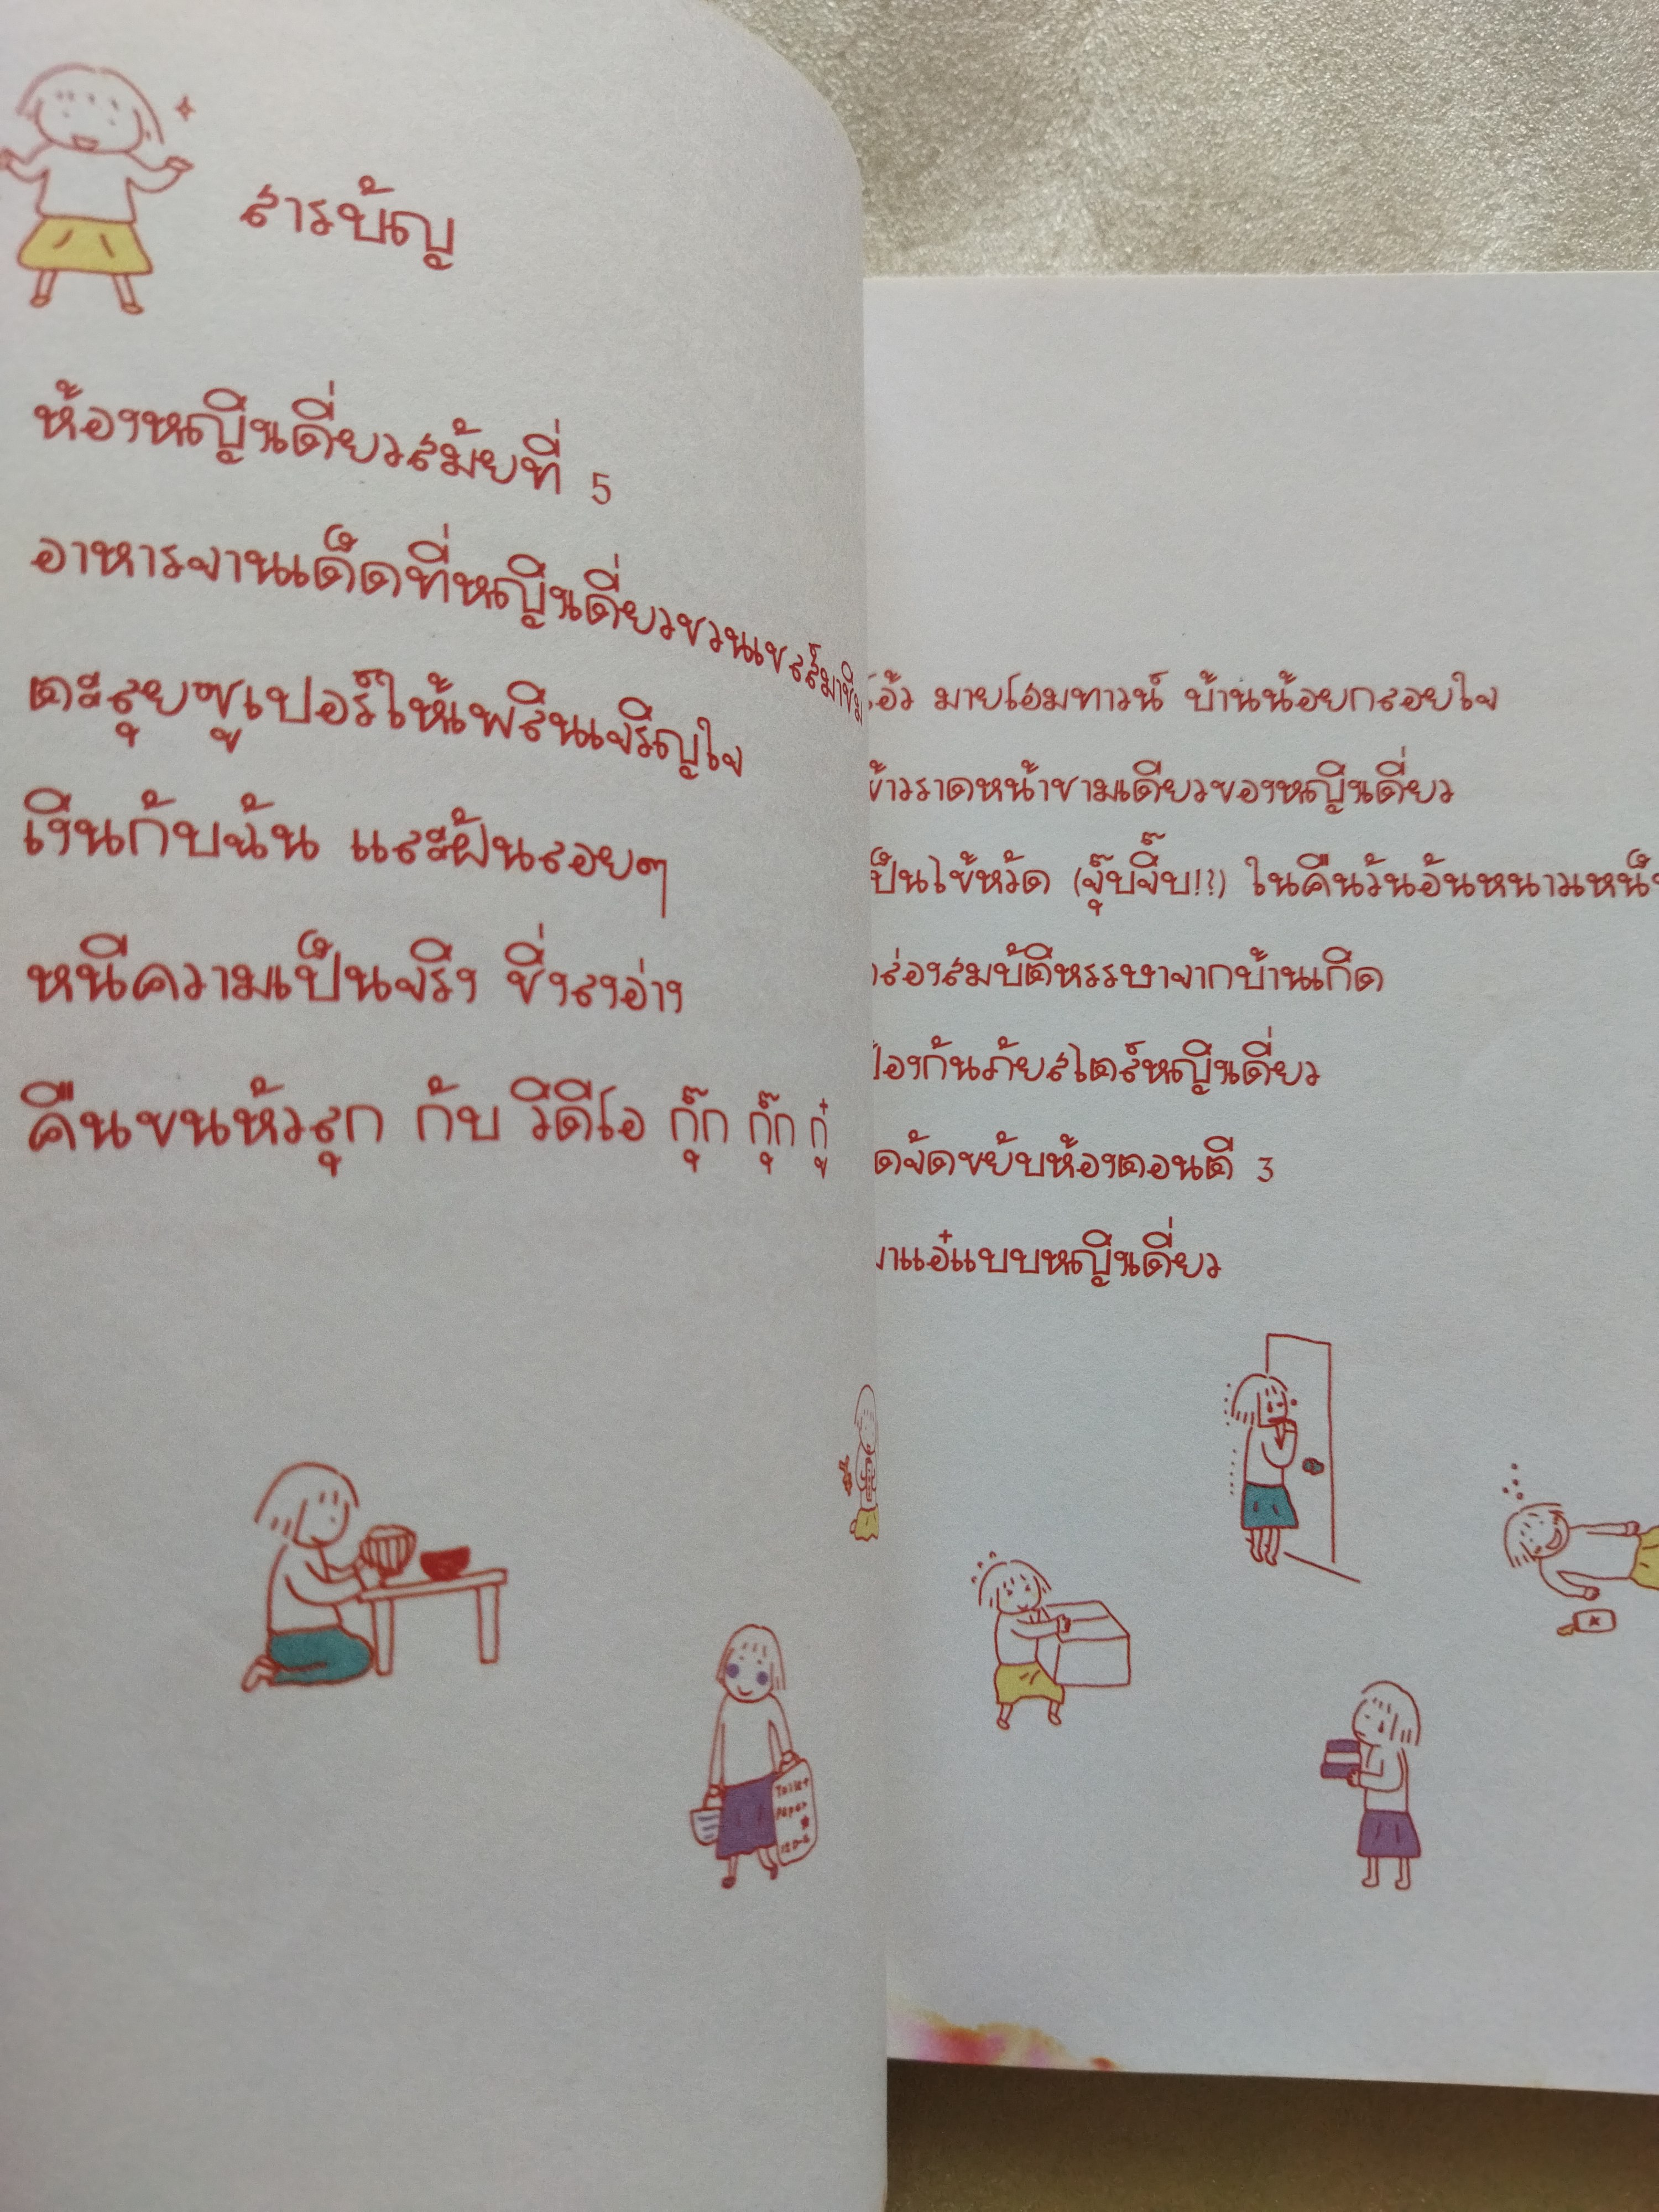 สารบัญ
ห้องหญิงเดี่ยวสมัยที่ 5
อาหารจานเด็ดที่หญิงเดี่ยวชวนเชลล์มาชิม
ตะลุยซูเปอร์ให้เพลินเจริญใจ
เงินกับฉัน และฝันลอยๆ
หนีความเป็นจริง ชิ่งลงอ่าง
คืนขนหัวลุก กับ วีดีโอ กุ๊ก กุ๊ก กู๋
โอ้ว มายโฮมทาวน์ บ้านน้อยกลอยใจ
ข้าวราดหน้าชามเดียวของหญิงเดี่ยว
เป็นไข้หวัด (จุ๊บจิ๊บ!?) ในคืนวันอันหนาวเหน็บ
กล่องสมบัติหรรษาจากบ้านเกิด
ป้องกันภัยสไตล์หญิงเดี่ยว
จัดขยับห้องตอนตี 3
แบบหญิงเดี่ยว
Toilet
Paper